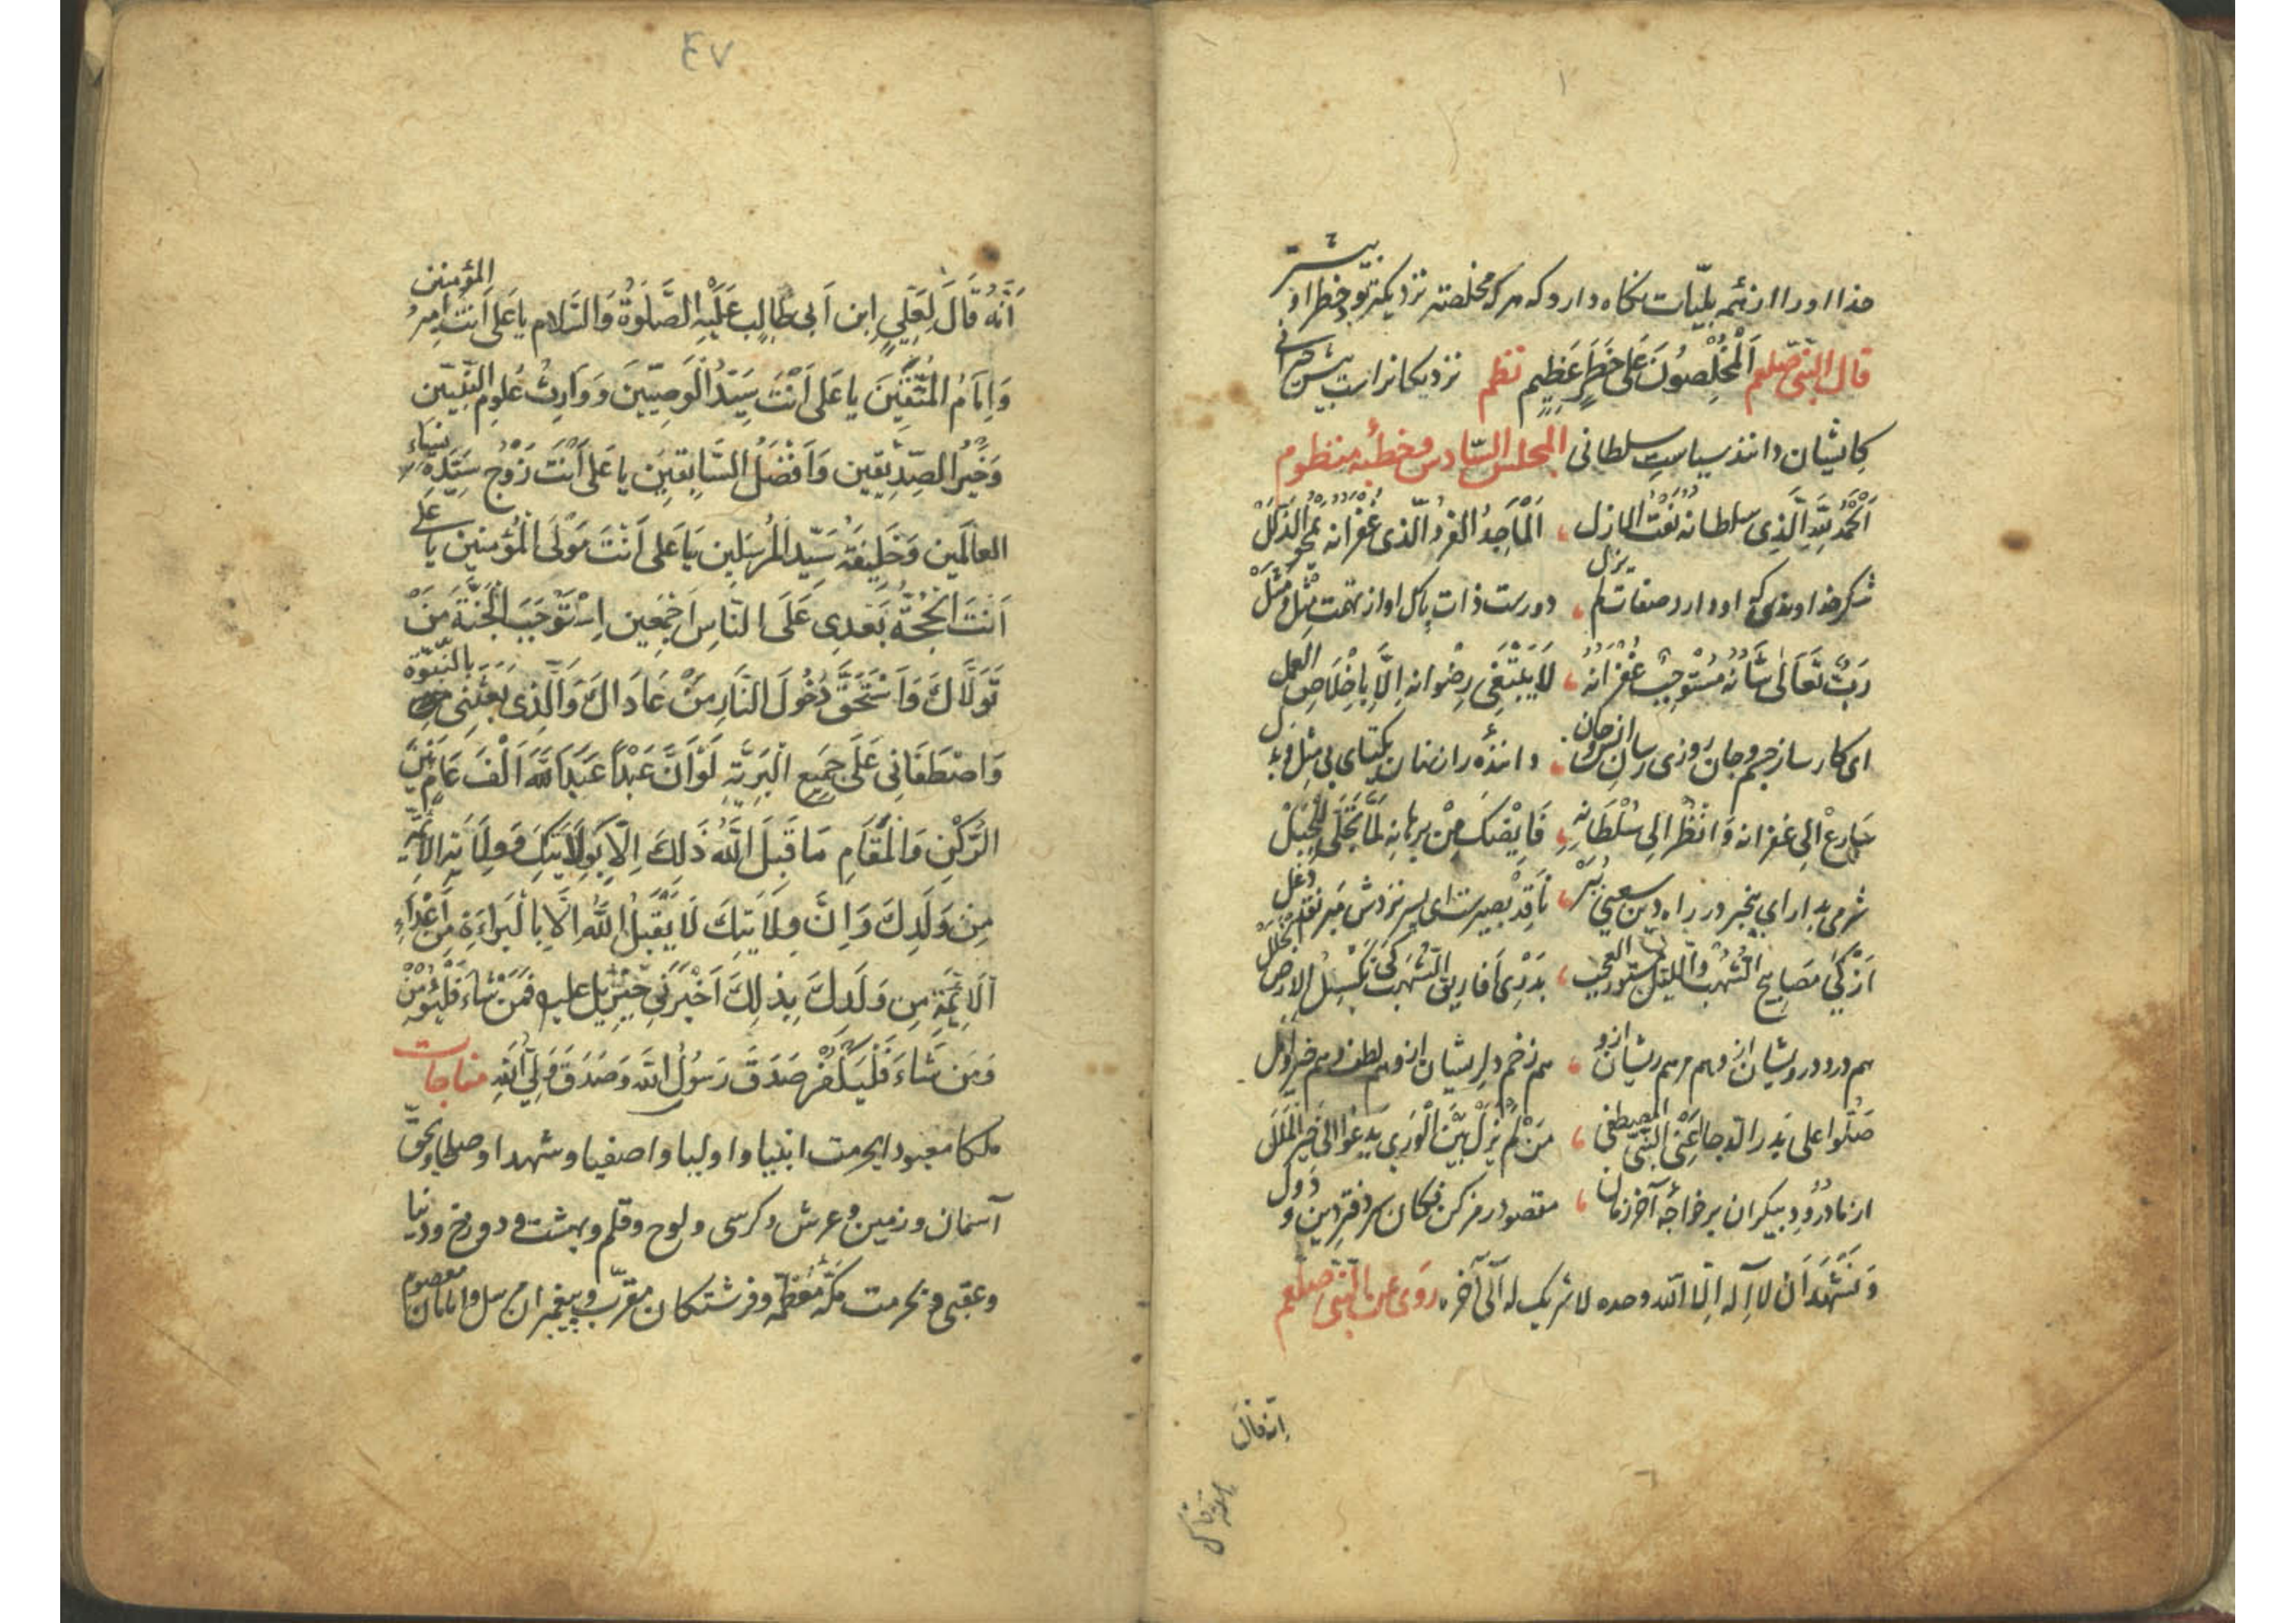 خدا او را از همه بلیّات نکاه دارد که هر که مخلصتر نزدیکتر بود خطر او بیشتر
قال النّبی صلعم اَلْمُخْلِصُونَ عَلی خَطَرٍ عَظِیمٍ نظم نزدیکانرا بیش حیرانی
کایشان دانند سیاست سلطانی المجلس السّادس و خطبهٔ منظوم
اَلْحَمْدُ لِلّهِ الَّذِی سلطانه نَعْتُ الازل ، الْمَاجِدُ الفردُ الّذی غُفْرَانه یَمْحُو الذَّلَلْ
شکر خداوندی که او دارد صفات لم یزل ، دورست ذات پاک او از تهمت مِثْل و مَثَل
رَبٌّ تَعَالَی شَانُه مُسْتَوجِبٌ غُفْرَانه ، لَا یَبْتَغِی رِضْوانه اِلَّا بِاِخْلَاصِ العمل
ای کار ساز جسم و جان روزی رسان انس و جان ، دانندهٔ راز نهان یکتای بی مثل و
سَارِعْ اِلی غفرانه وَانْظُرْ الی سُلْطَانِهِ ، لَمَّا تَجَلّی لِلْجَبَلْ
شرمی بدار ای بیخبر در راه دین سعیی ببر ، نَاقِد بصیرست ای پسر نزدش مبر نقد دغل
اَزْکی مَصَابِیح الشُّهُب
هم درد درویشان ازو هم مرهم ریشان ازو ، هم زخم دلریشان ازو هم لطف و هم خیر
صَلّوا علی بَدرِ الدّجا اَعْنِی النَّبی المصطفی ، مَنْ لَمْ یَزَلْ بَیْنَ الْوَرَی یَدعُوا الی خَیرِ الْمِلَلْ
از ما درود بیکران بر خواجهٔ آخر زمان ، مقصود رمز کن فکان سر دفتر دین و دول
وَنَشْهَدُ اَنْ لا اِله اِلّا اللّه وحده لا شریک له الی آخره روی عن النّبی صلعم
انه قال
۴۷
اَنَّهُ قَالَ لِعَلِیٍّ ابن اَبی طَالِب عَلَیْهِ الصَّلوةُ وَالسَّلام یا عَلی اَنْتَ اَمِیرُ المؤمنین
وَاِمَامُ الْمُتَّقِینَ یا عَلی اَنْتَ سَیِّدُ الْوَصِیّینَ وَوَارِثُ عُلُومِ النَّبِیّین
وَخَیْرُ الصِّدِیقین وَاَفْضَلُ السَّابِقین یا عَلی اَنْتَ زَوْجُ سَیِّدَةِ نِسَاءِ
العَالَمین وَخَلِیفَةُ سَیِّدِ الْمُرْسَلِین یَا عَلی اَنْتَ مَوْلَی الْمُؤْمِنین یا عَلی
اَنْتَ الْحُجَّةُ بَعْدِی عَلَی النَّاسِ اَجْمَعِین اِسْتَوْجَبَ الْجَنَّةَ مَنْ
تَوَلَّاکَ وَاسْتَحَقَّ دُخُولَ النَّارِ مَنْ عَادَاکَ وَالَّذِی بَعَثَنِی بِالنُّبُوَّة
وَاصْطَفَانِی عَلَی جَمِیعِ الْبَرِیَّةِ لَوْ اَنَّ عَبْدًا عَبَدَ اللّهَ اَلْفَ عَامٍ بَیْنَ
الرُّکْنِ وَالْمَقَامِ مَا قَبِلَ اللّهُ ذَلِکَ اِلَّا بِوِلَایَتِکَ وَوِلَایَةِ الْاَئِمَّةِ
مِنْ وَلَدِکَ وَاِنَّ وِلَایَتِکَ لَا یَقْبَلُ اللّهُ اِلَّا بِالْبَرَاءَةِ مِنْ اَعْدَاءِ
اَلْاَئِمَّةِ مِن وَلَدِکَ بِذلِکَ اَخْبَرَنِی جَبْرَئیل علیه فَمَنْ شَاءَ فَلْیُؤْمِنْ
وَمَن شَاءَ فَلْیَکْفُرْ صَدَقَ رَسُولُ اللّه وَصَدَقَ وَلِیُّ اللّهِ مناجات
ملکا معبودا بحرمت انبیا و اولیا و اصفیا و شهدا و صلحا و بحقّ
آسمان و زمین و عرش و کرسی و لوح و قلم و بهشت و دوزخ و دنیا
و عقبی و بحرمت مکّهٔ معظّمه و فرشتکان مقرّب و پیغمبران مرسل و امامان معصوم